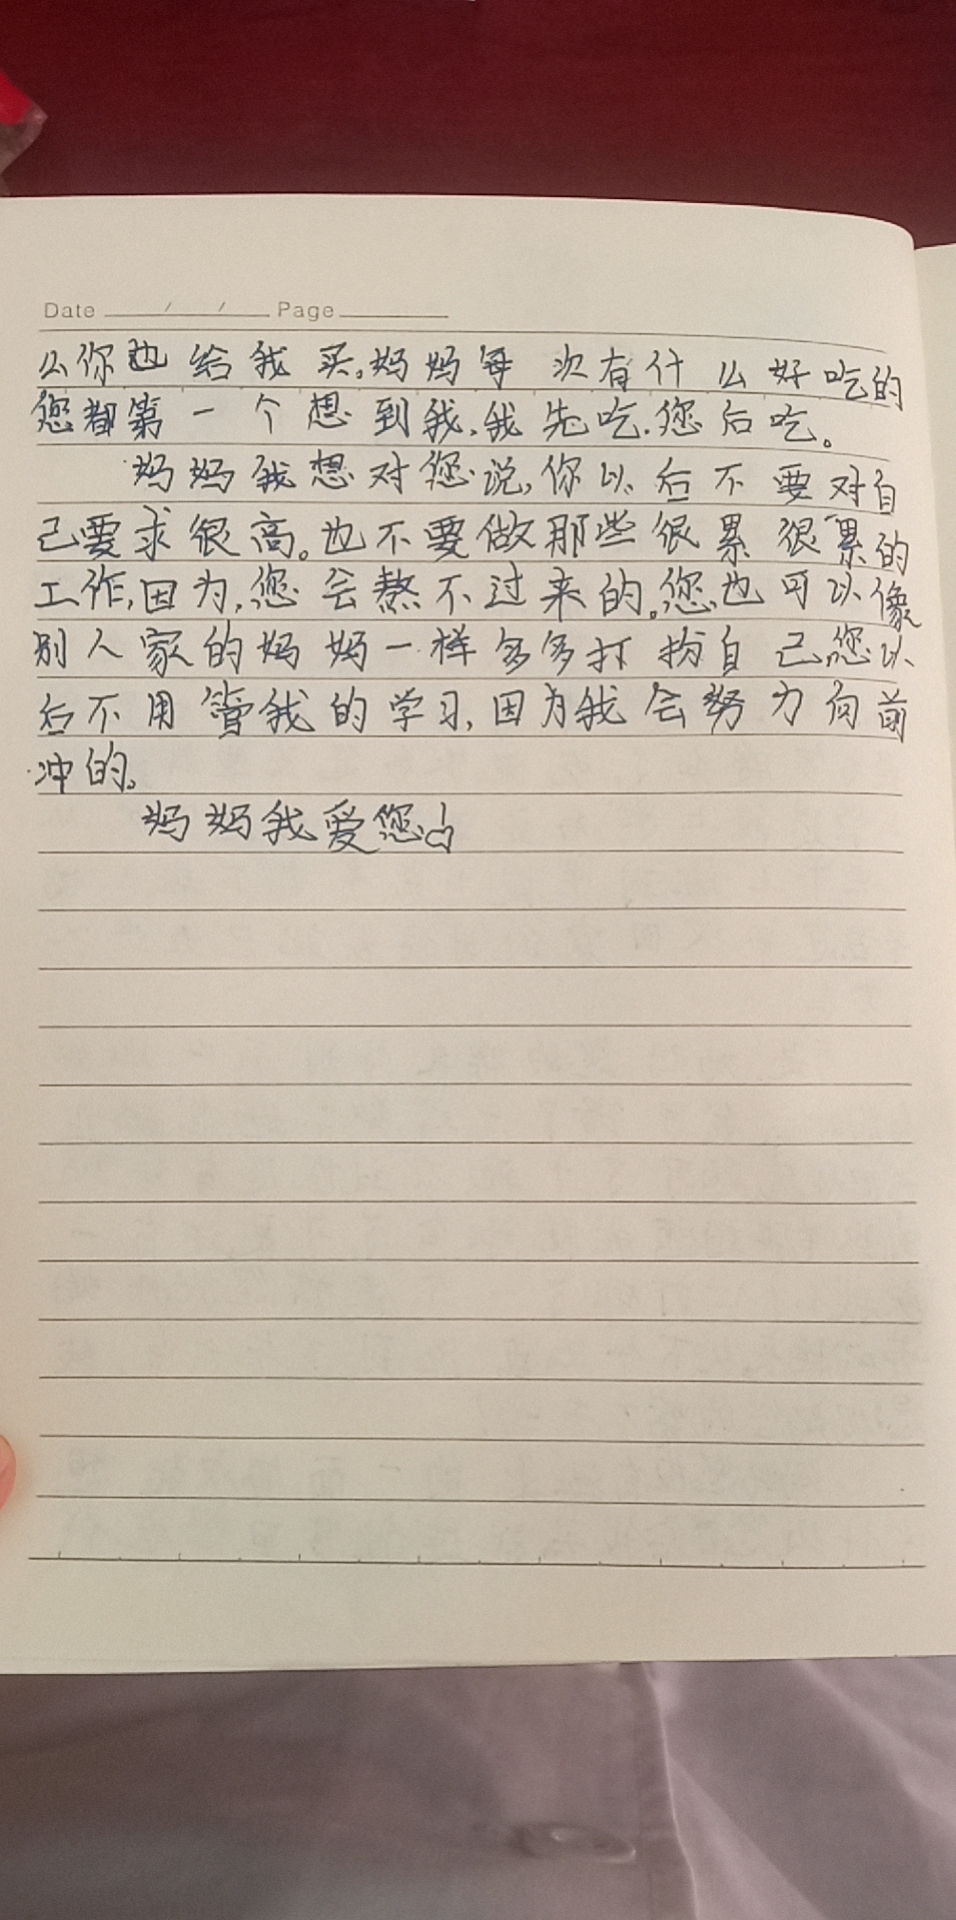 Date / / Page
么你也给我买。妈妈每次有什么好吃的
您都第一个想到我,我先吃.您后吃。
妈妈我想对您说,你以后不要对自
己要求很高。也不要做那些很累很累的
工作,因为,您会熬不过来的。您也可以像
别人家的妈妈一样多多打扮自己您以
后不用管我的学习,因为我会努力向前
冲的。
妈妈我爱您